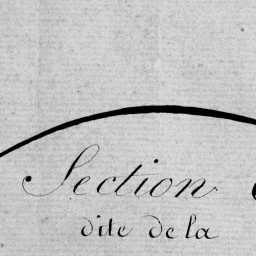 Section
dite de la